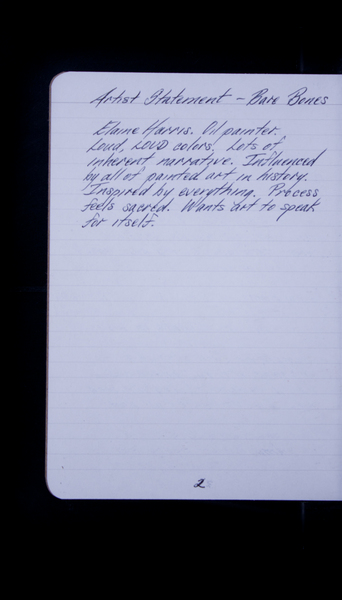 Artist Statement - Bare Bones
Elaine Harris. Oil painter.
Loud, LOUD colors. Lots of
inherent narrative. Influenced
by all of painted art in history.
Inspired by everything. Process
feels sacred. Wants art to speak
for itself.
2